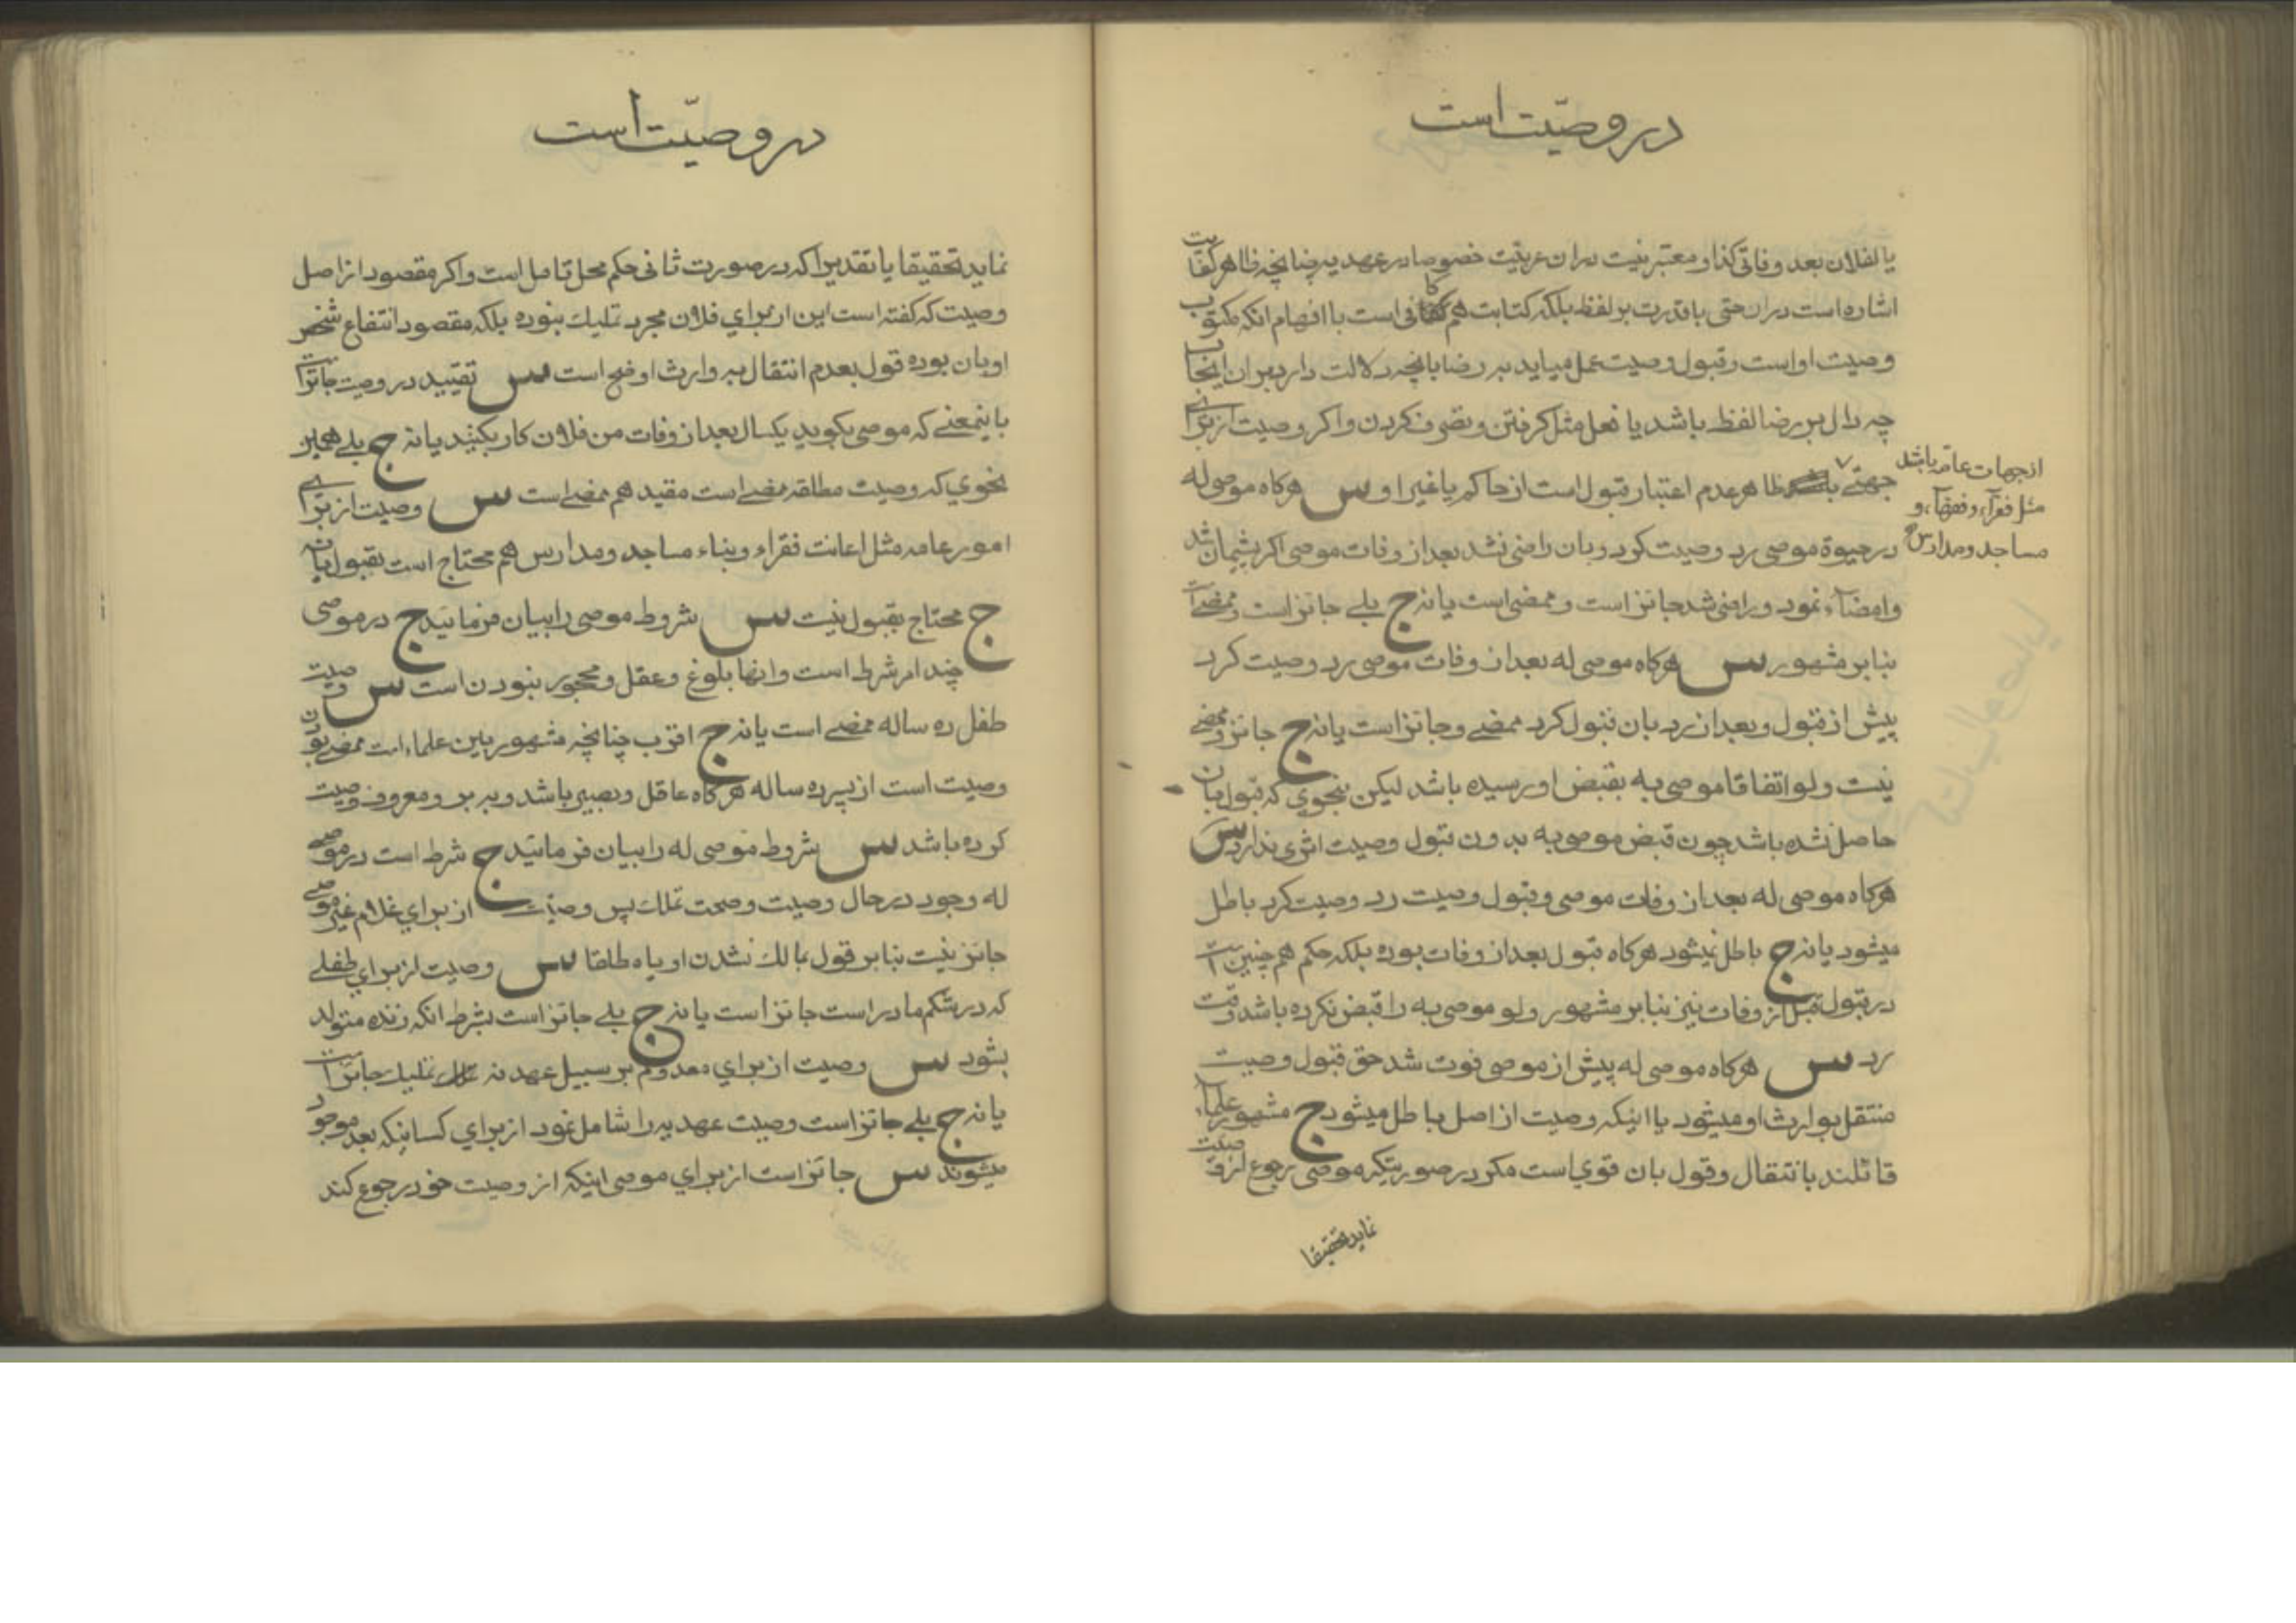 در وصیّت است
یا لفلان بعد وفاتی کذا و معتبر نیست در ان عربیّت خصوصا در عهدیه چنانچه ظاهر کفایت
اشاره است در ان حتی با قدرت بر لفظ بلکه کتابت هم کافی است با افهام انکه مکتوب
وصیت او است و قبول وصیت بعمل میاید به رضا بانچه دلالت دارد بران
چه دال بر رضا لفظ باشد یا فعل مثل کرفتن و تصرف کردن و اکر وصیت از برای
جهتی ظاهر عدم اعتبار قبول است از حاکم یا غیر او س هرکاه موصی له
از جهات عامّه باشد
مثل فقرآء و فقهآء و
مساجد و مدارس
در حیوة موصی رد وصیت کرد و بان راضی نشد بعد از وفات موصی اکر پشیمان شد
و امضآء نمود و راضی شد جائز است و ممضی است یا نه ج بلے جائز است و ممضے است
بنا بر مشهور س هرکاه موصی له بعد از وفات موصی رد وصیت کرد
پیش از قبول و بعد از رد بان قبول کرد ممضے و جائز است یا نه ج جائز و ممضے
نیست و لو اتفاقا موصی به بقبض او رسیده باشد لیکن بنحوی که قبول بان
حاصل نشده باشد چون قبض موصی به بدون قبول وصیت اثری ندارد س
هرکاه موصی له بعد از وفات موصی و قبول وصیت رد وصیت کرد باطل
میشود یا نه ج باطل نمیشود هرکاه قبول بعد از وفات بوده بلکه حکم هم چنین است
در قبول قبل از وفات نیز بنا بر مشهور و لو موصی به را قبض نکرده باشد وقت
رد س هرکاه موصی له پیش از موصی فوت شد حق قبول وصیت
منتقل بوارث او میشود یا اینکه وصیت از اصل باطل میشود ج مشهور علمآء
قائلند بانتقال و قول بان قوی است مکر در صورتیکه موصی رجوع از وصیت
نماید تحقیقا
در وصیّت است
نماید تحقیقا یا تقدیرا که در صورت ثانی حکم محل تامل است و اکر مقصود از اصل
وصیت که کفته است این از برای فلان مجرد تملیك نبوده بلکه مقصود انتفاع شخص
او بان بوده قول بعدم انتقال به وارث اوضح است س تقیید در وصیت جائز است
باینمعنے که موصی بکوید یکسال بعد از وفات من فلان کار بکنید یا نه ج بلے
نحوی که وصیت مطلقه ممضے است مقید هم ممضے است س وصیت از برای
امور عامه مثل اعانت فقراء و بناء مساجد و مدارس هم محتاج است بقبول یا نه
ج محتاج بقبول نیست س شروط موصی را بیان فرمائید ج در موصی
چند امر شرط است و انها بلوغ و عقل و محجور نبودن است س وصیت
طفل ده ساله ممضے است یا نه ج اقرب چنانچه مشهور بین علماء است ممضے بودن
وصیت است از پسر ده ساله هرکاه عاقل و بصیر باشد و به بر و معروف وصیت
کرده باشد س شروط موصی له را بیان فرمائید ج شرط است در موصی
له وجود در حال وصیت و صحت تملك پس وصیت از برای غلام غیر موصی
جائز نیست بنا بر قول بمالك نشدن او یا مطلقا س وصیت از برای طفلے
که در شکم مادر است جائز است یا نه ج بلے جائز است بشرط انکه زنده متولد
بشود س وصیت از برای معدوم بر سبیل عهد نه تملیك جائز است
یا نه ج بلے جائز است وصیت عهدیه را شامل نمود از برای کسانیکه بعد موجود
میشوند س جائز است از برای موصی اینکه از وصیت خود رجوع کند